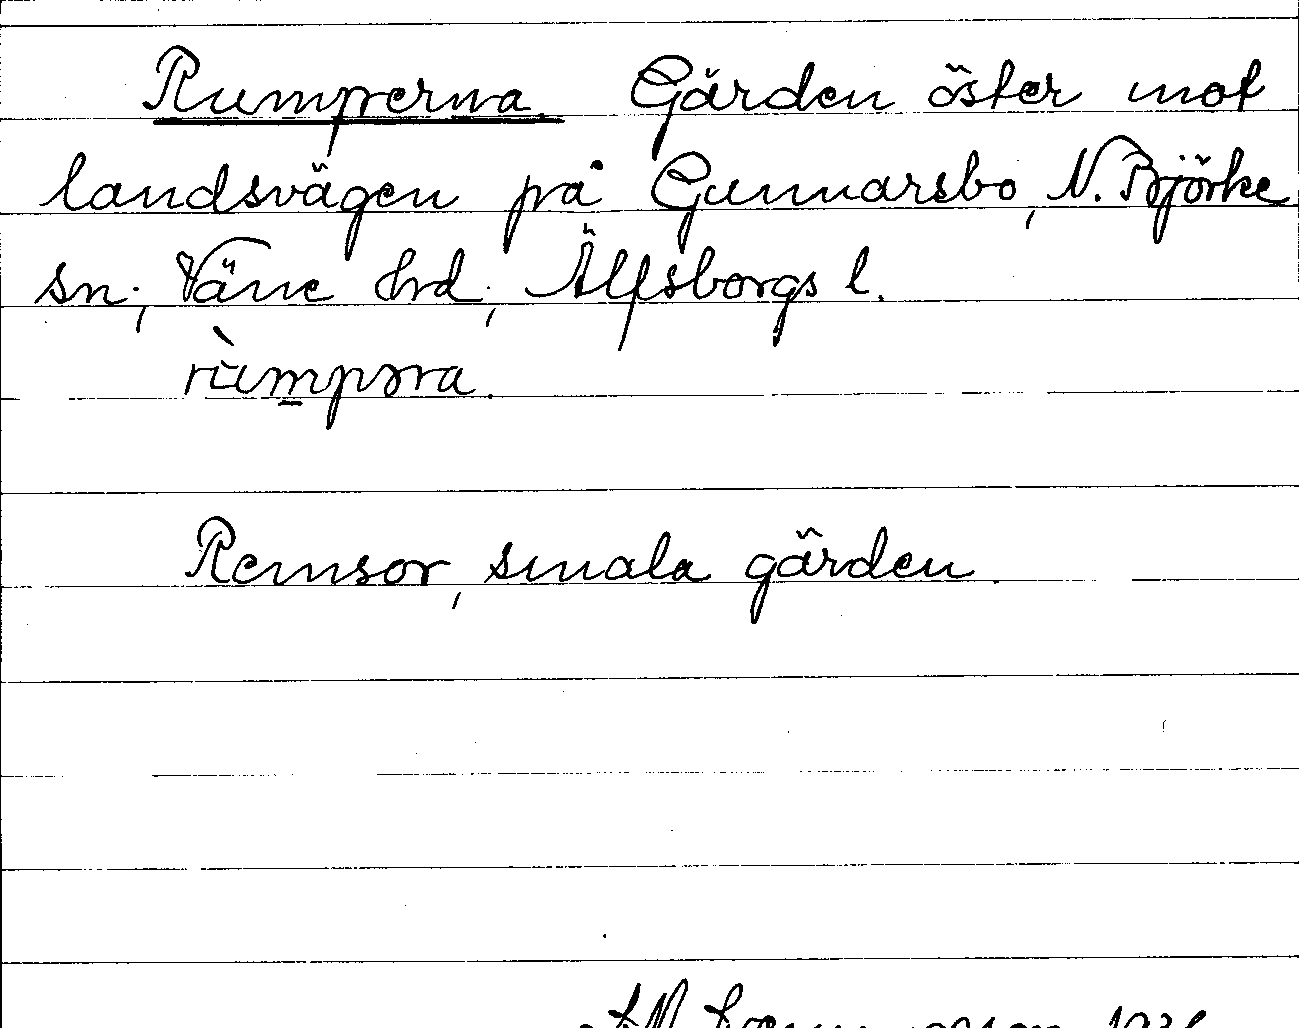 Rumperna. Gärden öster mot
landsvägen på Gunnarsbo, N. Björke
sn; Väne hrd; Älfsborgs l.
rùmpəra.
Remsor, smala gärden.